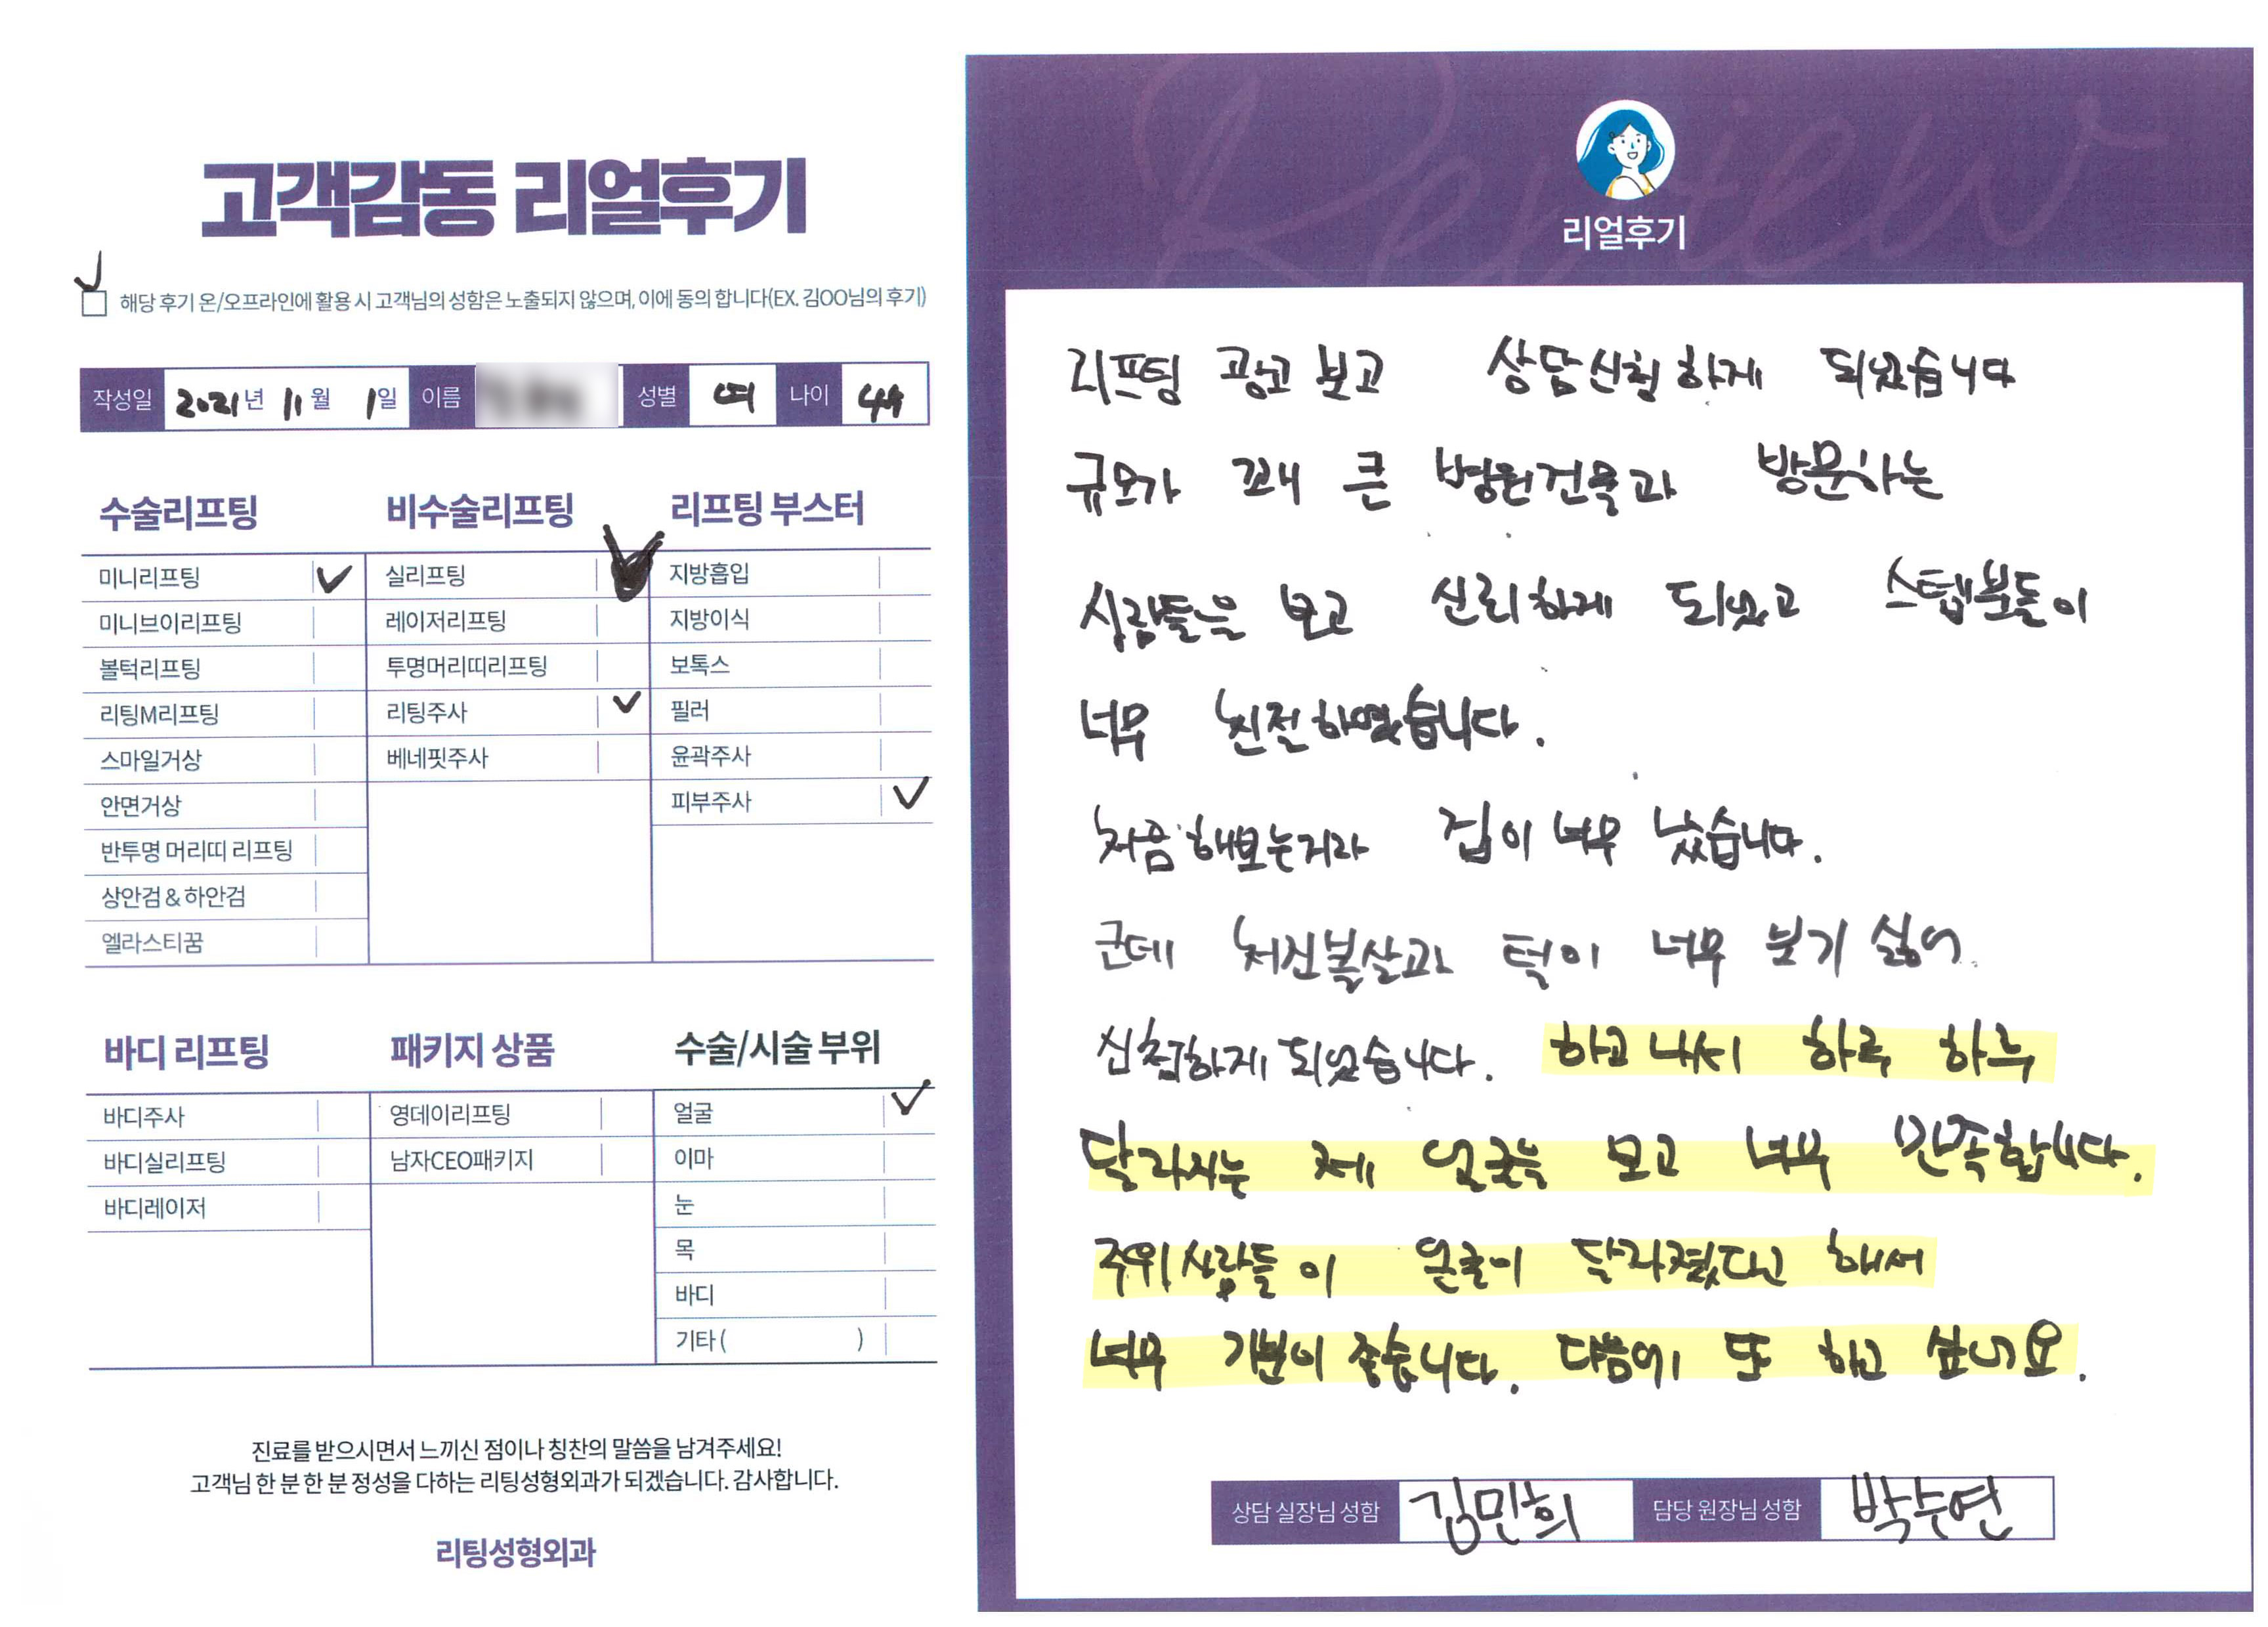 고객감동 리얼후기
해당 후기 온/오프라인에 활용 시 고객님의 성함은 노출되지 않으며, 이에 동의 합니다(EX. 김OO님의 후기)
작성일 2021년 11월 1일 이름 성별 여 나이 44
수술리프팅 비수술리프팅 리프팅 부스터
미니리프팅 실리프팅 지방흡입
미니브이리프팅 레이저리프팅 지방이식
볼턱리프팅 투명머리띠리프팅 보톡스
리팅M리프팅 리팅주사 필러
스마일거상 베네핏주사 윤곽주사
안면거상 피부주사
반투명 머리띠 리프팅
상안검 & 하안검
엘라스티꿈
바디 리프팅 패키지 상품 수술/시술 부위
바디주사 영데이리프팅 얼굴
바디실리프팅 남자CEO패키지 이마
바디레이저 눈
목
바디
기타 ( )
진료를 받으시면서 느끼신 점이나 칭찬의 말씀을 남겨주세요!
고객님 한 분 한 분 정성을 다하는 리팅성형외과가 되겠습니다. 감사합니다.
리팅성형외과
Review
리얼후기
리프팅 광고 보고 상담신청하게 되었습니다
규모가 꽤 큰 병원건물과 방문하는
사람들을 보고 신뢰하게 되었고 스텝분들이
너무 친절하였습니다.
처음 해보는거라 겁이 너무 났습니다.
근데 처진볼살과 턱이 너무 보기 싫어
신청하게 되었습니다. 하고 나서 하루 하루
달라지는 제 얼굴을 보고 너무 만족합니다.
주위사람들이 얼굴이 달라졌다고 해서
너무 기분이 좋습니다. 다음에 또 하고 싶어요.
상담 실장님 성함 김민희 담당 원장님 성함 박수연